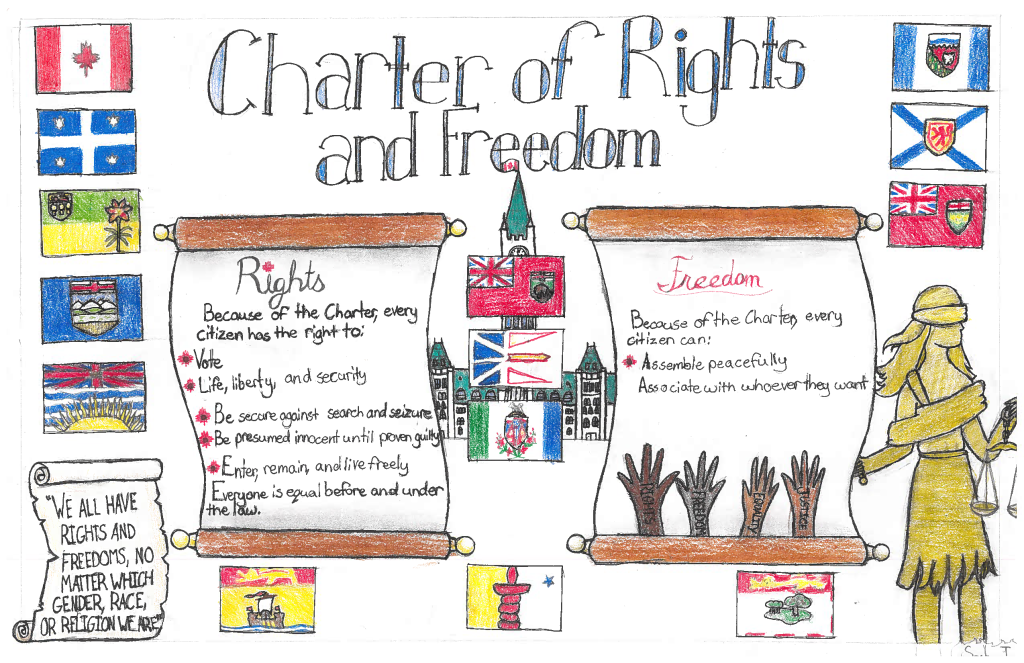 Charter of Rights
and Freedom
Rights
Because of the Charter, every
citizen has the right to:
Vote
Life, liberty, and security
Be secure against search and seizure
Be presumed innocent until proven guilty
Enter, remain, and live freely
Everyone is equal before and under
the law.
Freedom
Because of the Charter, every
citizen can:
Assemble peacefully
Associate with whoever they want
RIGHTS
FREEDOM
EQUALITY
JUSTICE
"WE ALL HAVE
RIGHTS AND
FREEDOMS, NO
MATTER WHICH
GENDER, RACE,
OR RELIGION WE ARE"